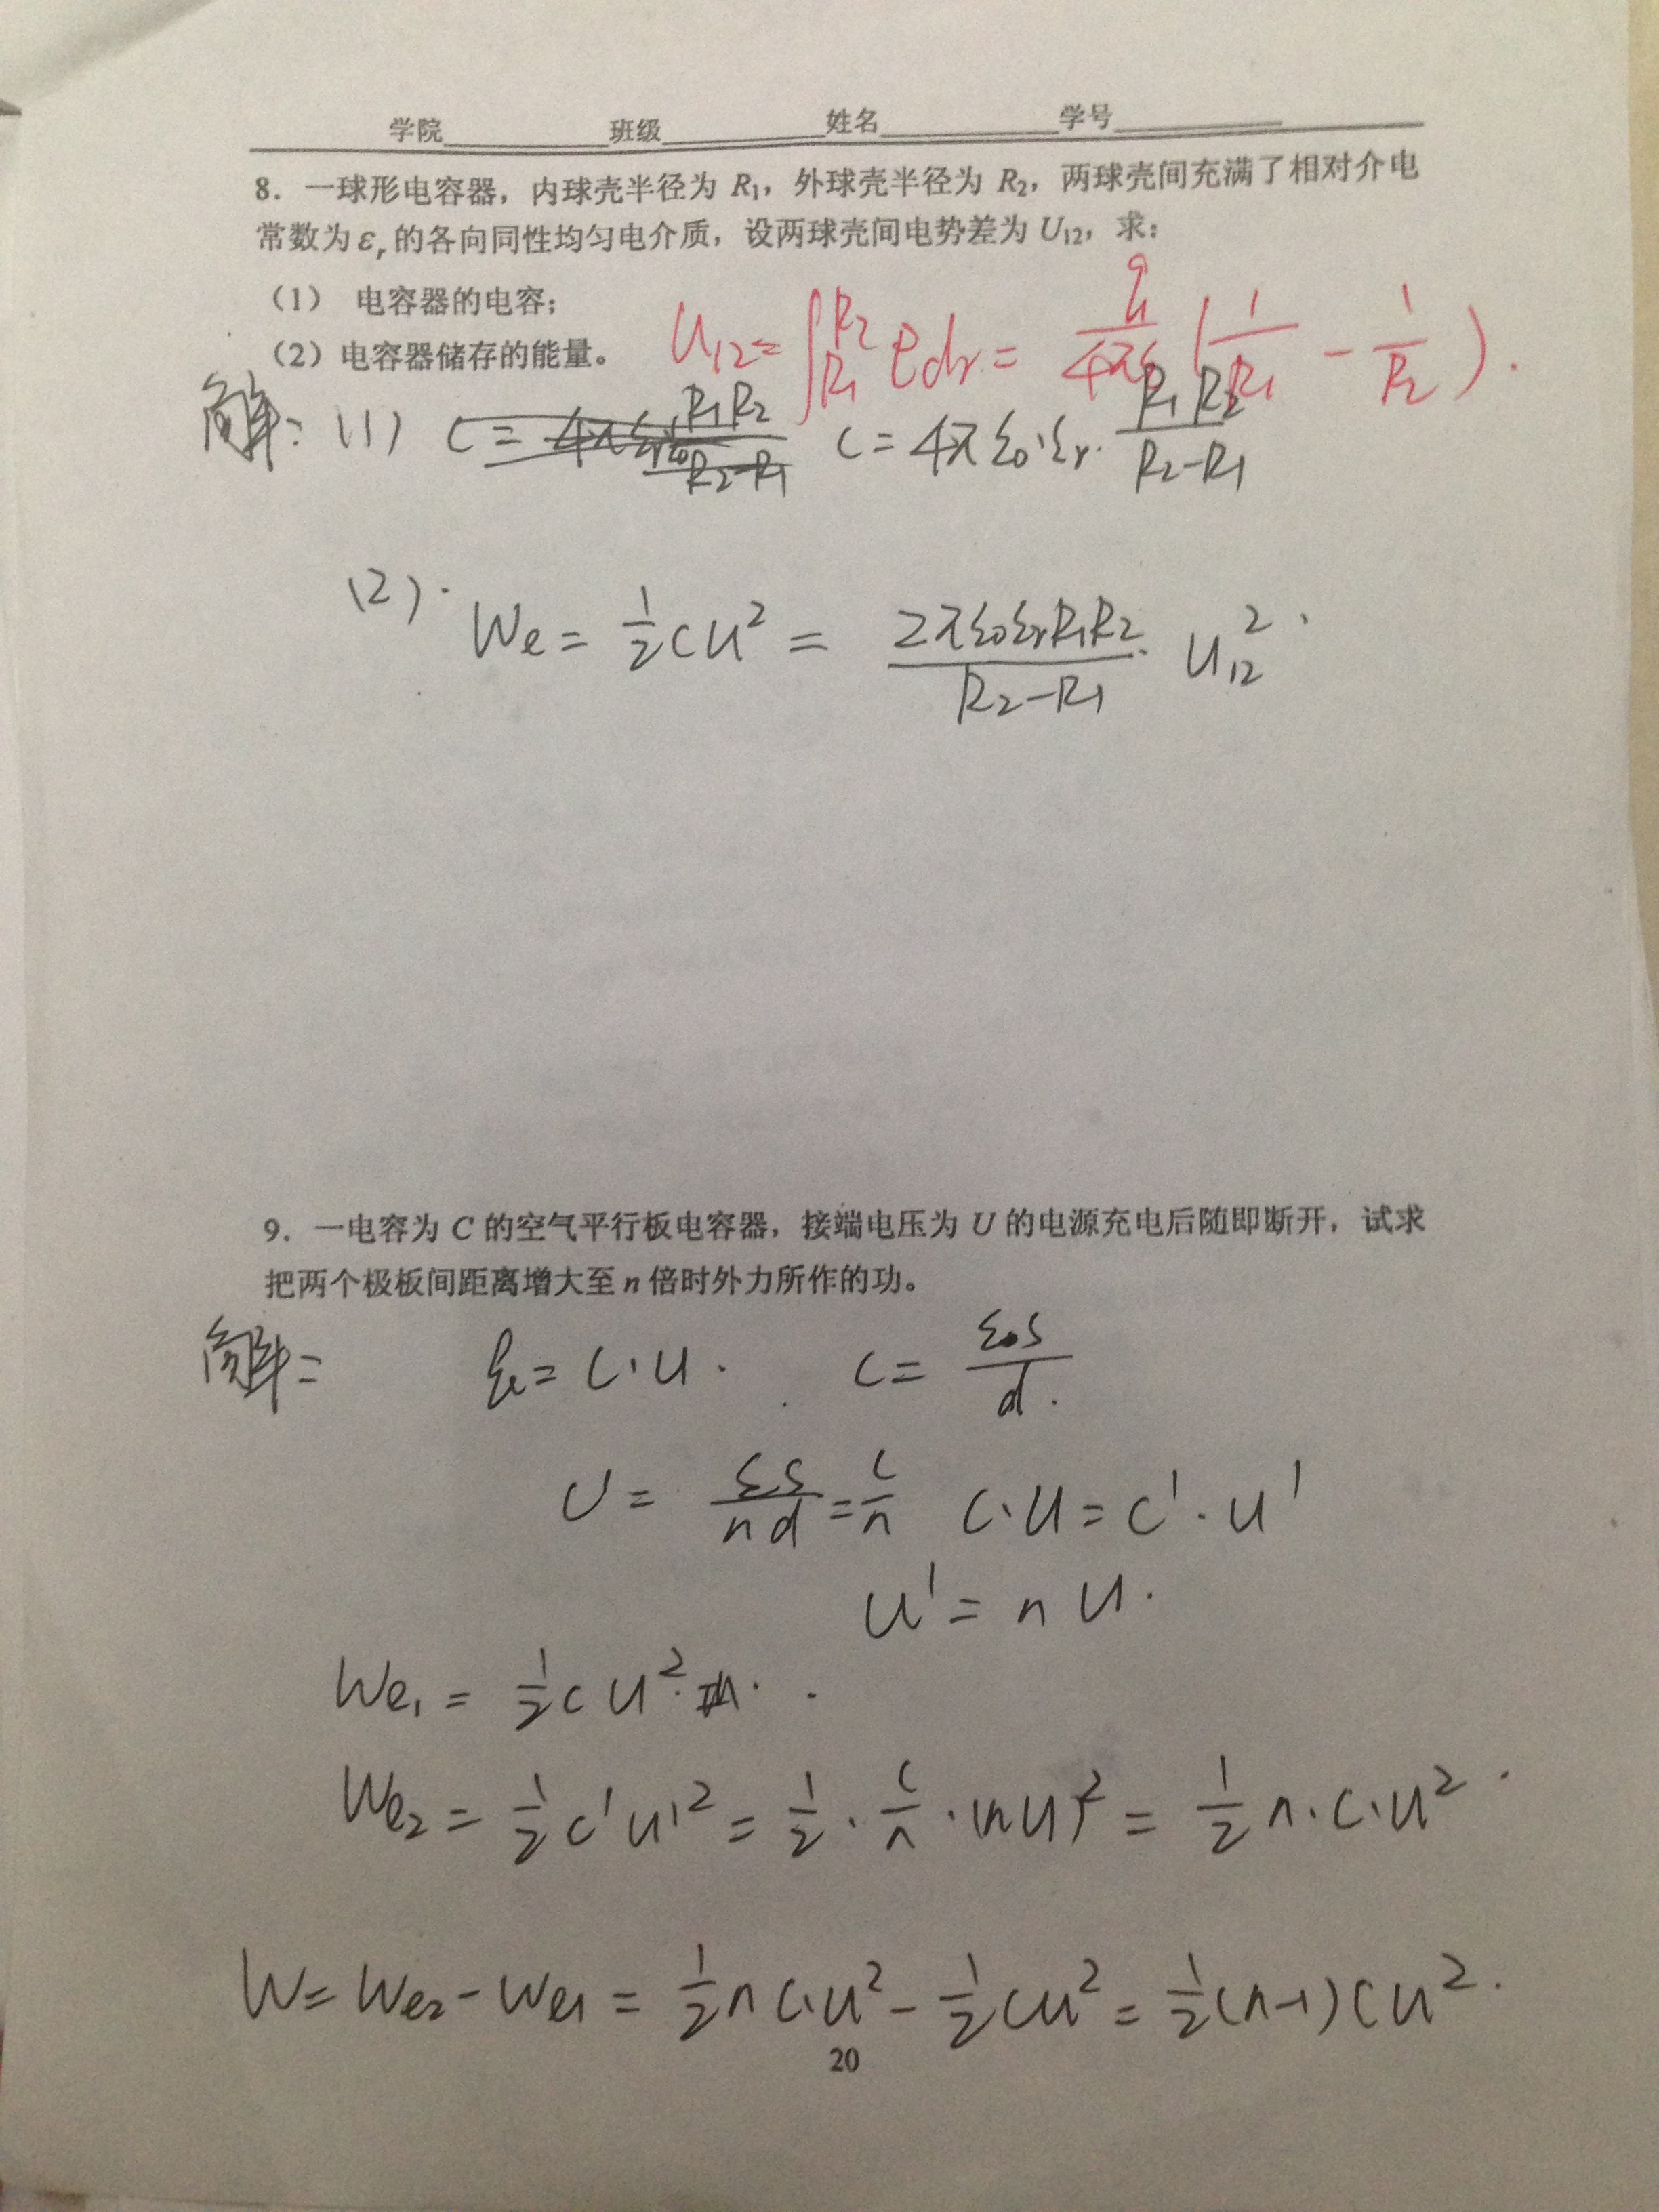 学院 班级 姓名 学号
8. 一球形电容器，内球壳半径为 R₁，外球壳半径为 R₂，两球壳间充满了相对介电
常数为 εᵣ 的各向同性均匀电介质，设两球壳间电势差为 U₁₂，求：
（1） 电容器的电容；
（2）电容器储存的能量。 U₁₂=∫_{R₁}^{R₂} Edr = q/4πε (1/R₁ - 1/R₂).
解：(1) C = 4πε₀·εᵣ· R₁R₂/(R₂-R₁)
(2). We = ½CU² = 2πε₀εᵣR₁R₂/(R₂-R₁) · U₁₂².
9. 一电容为 C 的空气平行板电容器，接端电压为 U 的电源充电后随即断开，试求
把两个极板间距离增大至 n 倍时外力所作的功。
解： = C·U. C = ε₀S/d.
C' = εS/nd = C/n C·U = C'·U'
U' = nU.
We₁ = ½CU².
We₂ = ½C'U'² = ½·C/n·(nU)² = ½n·C·U².
W = We₂ - We₁ = ½nC·U² - ½CU² = ½(n-1)CU².
20